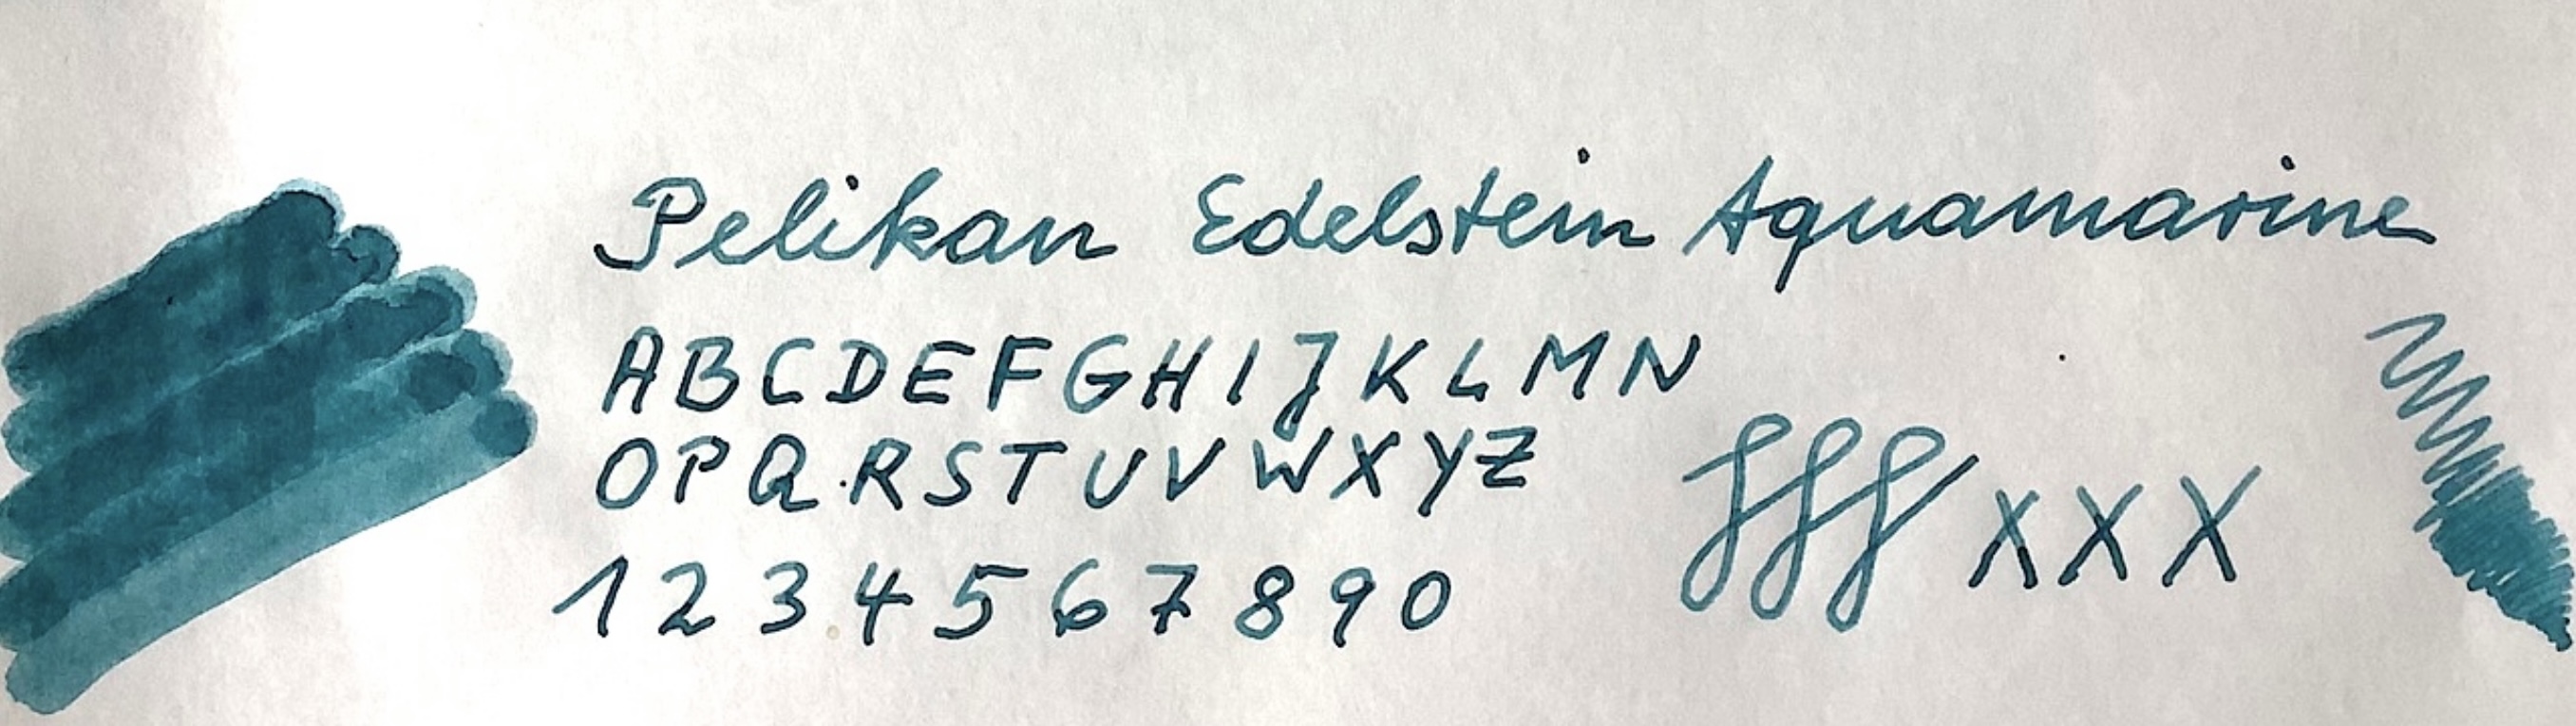 Pelikan Edelstein Aquamarine
ABCDEFGHIJKLMN
OPQRSTUVWXYZ
1234567890
fff XXX